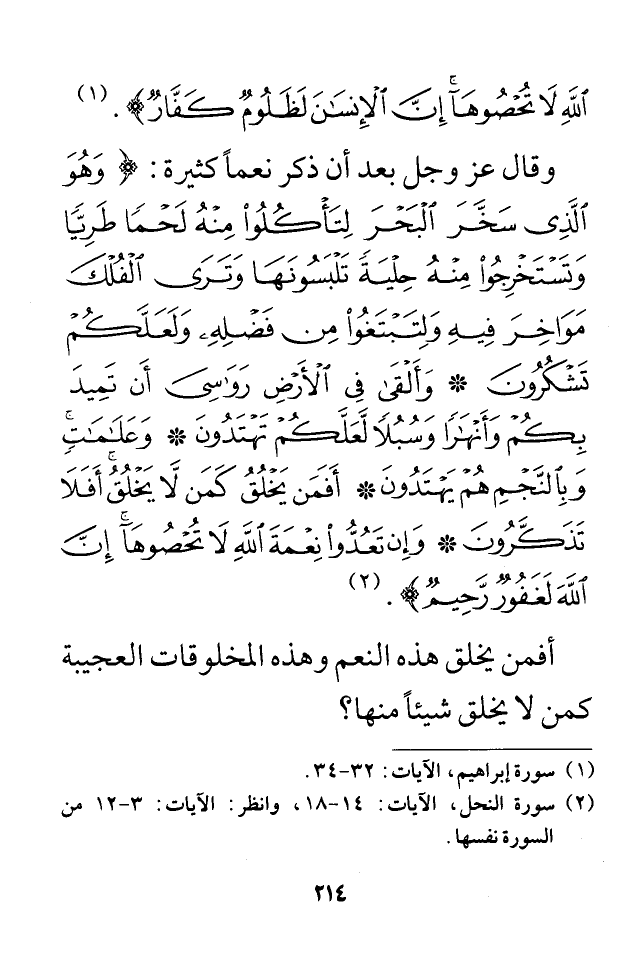 ٱللَّهِ لَا تُحْصُوهَآ ۗ إِنَّ ٱلْإِنسَٰنَ لَظَلُومٌ كَفَّارٌ﴾ . (١)
وقال عز وجل بعد أن ذكر نعماً كثيرة: ﴿ وَهُوَ
ٱلَّذِى سَخَّرَ ٱلْبَحْرَ لِتَأْكُلُوا۟ مِنْهُ لَحْمًا طَرِيًّا
وَتَسْتَخْرِجُوا۟ مِنْهُ حِلْيَةً تَلْبَسُونَهَا وَتَرَى ٱلْفُلْكَ
مَوَاخِرَ فِيهِ وَلِتَبْتَغُوا۟ مِن فَضْلِهِۦ وَلَعَلَّكُمْ
تَشْكُرُونَ * وَأَلْقَىٰ فِى ٱلْأَرْضِ رَوَٰسِىَ أَن تَمِيدَ
بِكُمْ وَأَنْهَٰرًا وَسُبُلًا لَّعَلَّكُمْ تَهْتَدُونَ * وَعَلَٰمَٰتٍ ۚ
وَبِٱلنَّجْمِ هُمْ يَهْتَدُونَ * أَفَمَن يَخْلُقُ كَمَن لَّا يَخْلُقُ ۗ أَفَلَا
تَذَكَّرُونَ * وَإِن تَعُدُّوا۟ نِعْمَةَ ٱللَّهِ لَا تُحْصُوهَآ ۗ إِنَّ
ٱللَّهَ لَغَفُورٌ رَّحِيمٌ﴾ . (٢)
أفمن يخلق هذه النعم وهذه المخلوقات العجيبة
كمن لا يخلق شيئاً منها؟
(١) سورة إبراهيم، الآيات: ٣٢-٣٤.
(٢) سورة النحل، الآيات: ١٤-١٨، وانظر: الآيات: ٣-١٢ من
السورة نفسها.
٢١٤